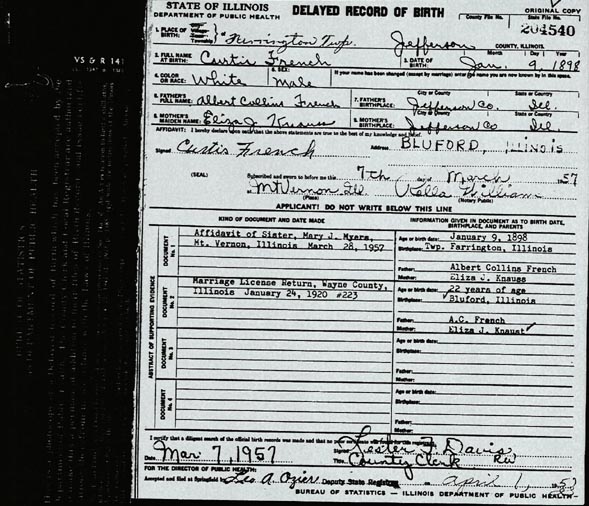 STATE OF ILLINOIS
DEPARTMENT OF PUBLIC HEALTH
DELAYED RECORD OF BIRTH
ORIGINAL COPY
County File No.
State File No.
204540
1. PLACE OF BIRTH: Township Farrington Twp. Jefferson COUNTY, ILLINOIS.
2. FULL NAME AT BIRTH: Curtis French
3. DATE OF BIRTH: Month Day Year
Jan. 9, 1898
VS & R 141
4. COLOR OR RACE: White
5. SEX: Male
If your name has been changed (except by marriage) enter the name you are now known by in this space.
6. FATHER'S FULL NAME: Albert Collins French
7. FATHER'S BIRTHPLACE: City or County State or Country
Jefferson Co. Ill.
8. MOTHER'S MAIDEN NAME: Eliza J. Knauss
9. MOTHER'S BIRTHPLACE: City or County State or Country
Jefferson Co. Ill.
AFFIDAVIT: I hereby declare upon oath that the above statements are true to the best of my knowledge and belief.
Signed Curtis French
Address BLUFORD, ILLINOIS
(SEAL)
Subscribed and sworn to before me this 7th day March 1957
Mt Vernon Ill
(Place)
Williams
(Notary Public)
APPLICANT! DO NOT WRITE BELOW THIS LINE
KIND OF DOCUMENT AND DATE MADE
INFORMATION GIVEN IN DOCUMENT AS TO BIRTH DATE, BIRTHPLACE, AND PARENTS
ABSTRACT OF SUPPORTING EVIDENCE
DOCUMENT No. 1
Affidavit of Sister, Mary J. Myers,
Mt. Vernon, Illinois March 28, 1957
Age or birth date: January 9, 1898
Birthplace: Twp. Farrington, Illinois
Father: Albert Collins French
Mother: Eliza J. Knauss
DOCUMENT No. 2
Marriage License Return, Wayne County,
Illinois January 24, 1920 #223
Age or birth date: 22 years of age
Birthplace: Bluford, Illinois
Father: A.C. French
Mother: Eliza J. Knaust
DOCUMENT No. 3
Age or birth date:
Birthplace:
Father:
Mother:
DOCUMENT No. 4
Age or birth date:
Birthplace:
Father:
Mother:
I certify that a diligent search of the official birth records was made and that no
Date Mar 7, 1957
Signed Lester F. Davis
Title County Clerk
FOR THE DIRECTOR OF PUBLIC HEALTH:
Accepted and filed at Springfield by Leo A. Ozier Deputy State Registrar on April 1, 1957
BUREAU OF STATISTICS — ILLINOIS DEPARTMENT OF PUBLIC HEALTH